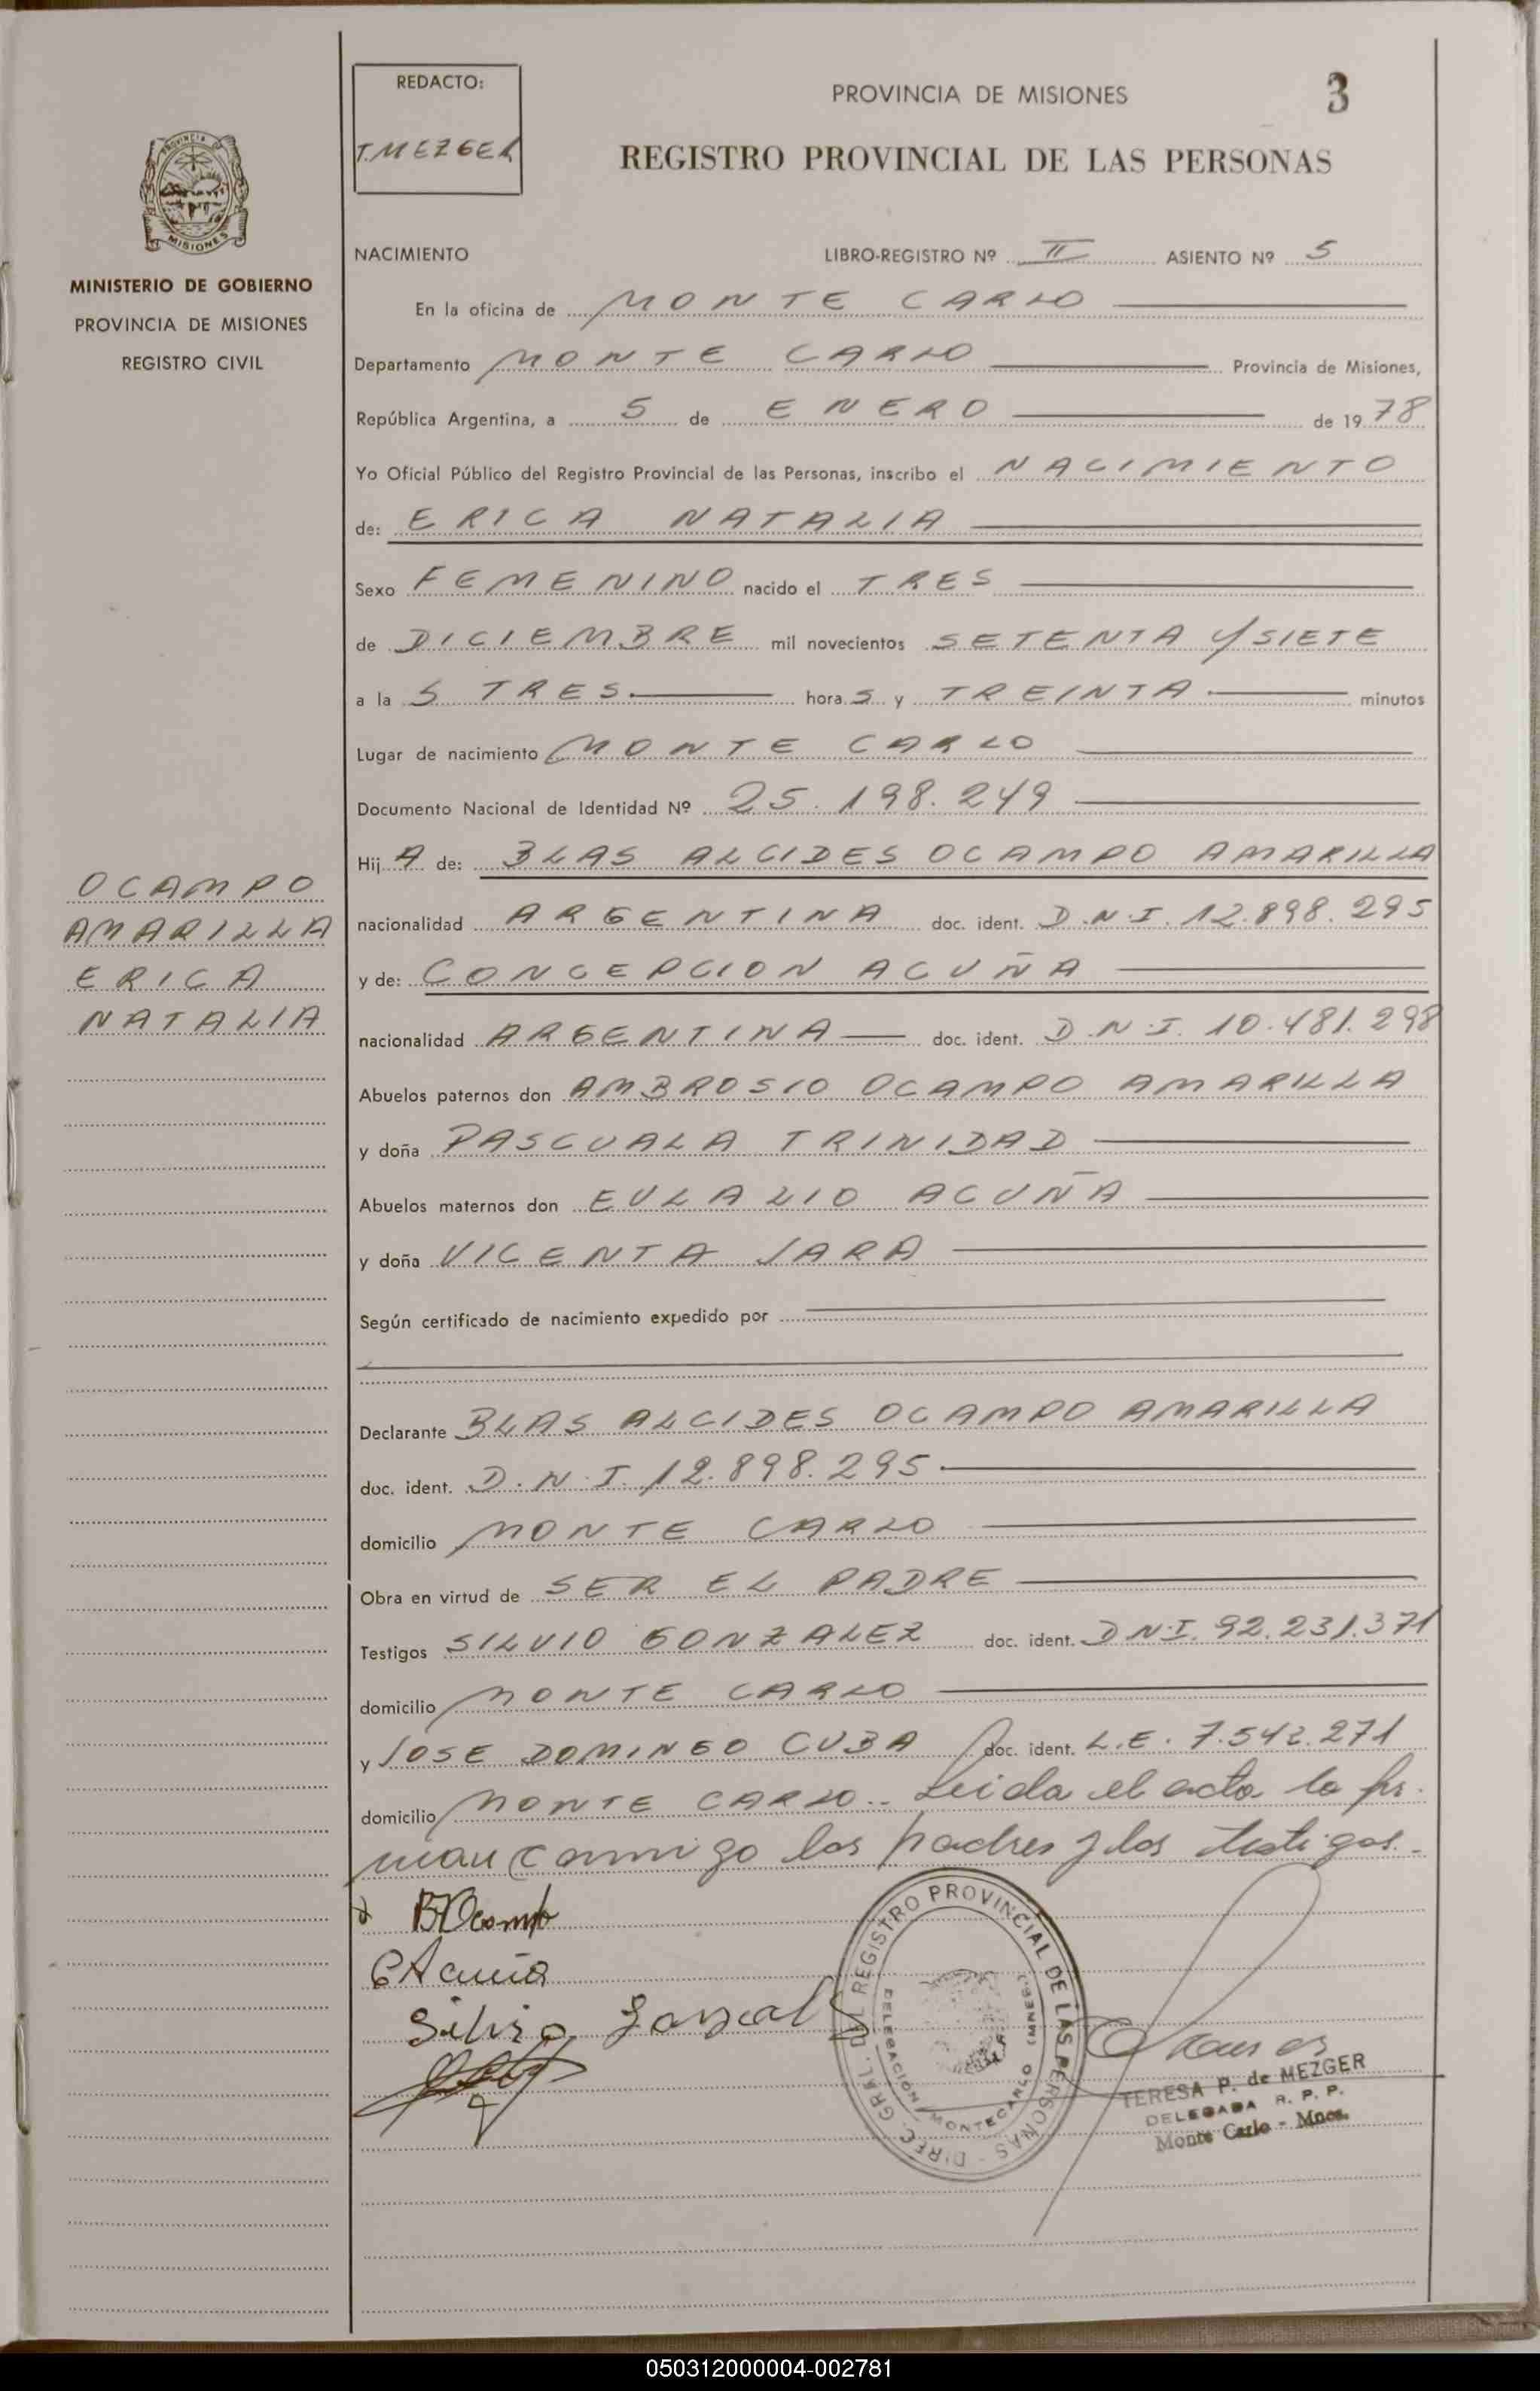 REDACTO:
T. MEZGER
PROVINCIA DE MISIONES
3
REGISTRO PROVINCIAL DE LAS PERSONAS
PROVINCIA DE
MISIONES
MINISTERIO DE GOBIERNO
PROVINCIA DE MISIONES
REGISTRO CIVIL
NACIMIENTO LIBRO-REGISTRO Nº II ASIENTO Nº 5
En la oficina de MONTE CARLO
Departamento MONTE CARLO Provincia de Misiones,
República Argentina, a 5 de ENERO de 1978
Yo Oficial Público del Registro Provincial de las Personas, inscribo el NACIMIENTO
de: ERICA NATALIA
Sexo FEMENINO nacido el TRES
de DICIEMBRE mil novecientos SETENTA Y SIETE
a la S TRES. hora S y TREINTA minutos
Lugar de nacimiento MONTE CARLO
Documento Nacional de Identidad Nº 25.198.249
Hij A de: BLAS ALCIDES OCAMPO AMARILLA
nacionalidad ARGENTINA doc. ident. D.N.I. 12.898.295
y de: CONCEPCION ACUÑA
nacionalidad ARGENTINA doc. ident. D.N.I. 10.481.298
OCAMPO
AMARILLA
ERICA
NATALIA
Abuelos paternos don AMBROSIO OCAMPO AMARILLA
y doña PASCUALA TRINIDAD
Abuelos maternos don EULALIO ACUÑA
y doña VICENTA JARA
Según certificado de nacimiento expedido por
Declarante BLAS ALCIDES OCAMPO AMARILLA
doc. ident. D.N.I. 12.898.295
domicilio MONTE CARLO
Obra en virtud de SER EL PADRE
Testigos SILVIO GONZALEZ doc. ident. D.N.I. 92.231.371
domicilio MONTE CARLO
y JOSE DOMINGO CUBA doc. ident. L.E. 7.542.271
domicilio MONTE CARLO.. Leida el acta la fir-
man conmigo los padres y los testigos.-
B Ocampo
C Acuña
Silvio Gonzalez
DIREC. GRAL. DEL REGISTRO PROVINCIAL DE LAS PERSONAS
DELEGACIÓN MONTECARLO (MNES.)
TERESA P. de MEZGER
DELEGADA R. P. P.
Monte Carlo - Mnes.
050312000004-002781